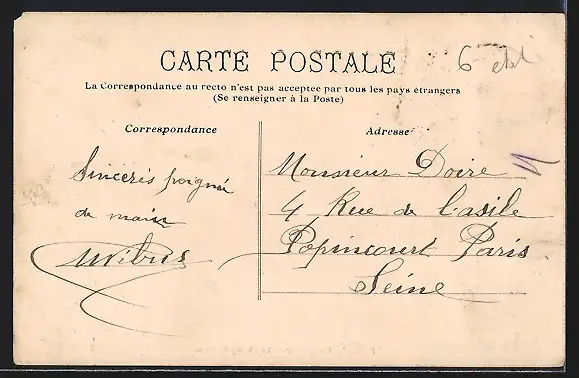 CARTE POSTALE
6
La Correspondance au recto n'est pas acceptee par tous les pays étrangers
(Se renseigner à la Poste)
Correspondance
Adresse
Sincères poignée
de main
Monsieur Doire
4 Rue de l'asile
Popincourt Paris
Seine